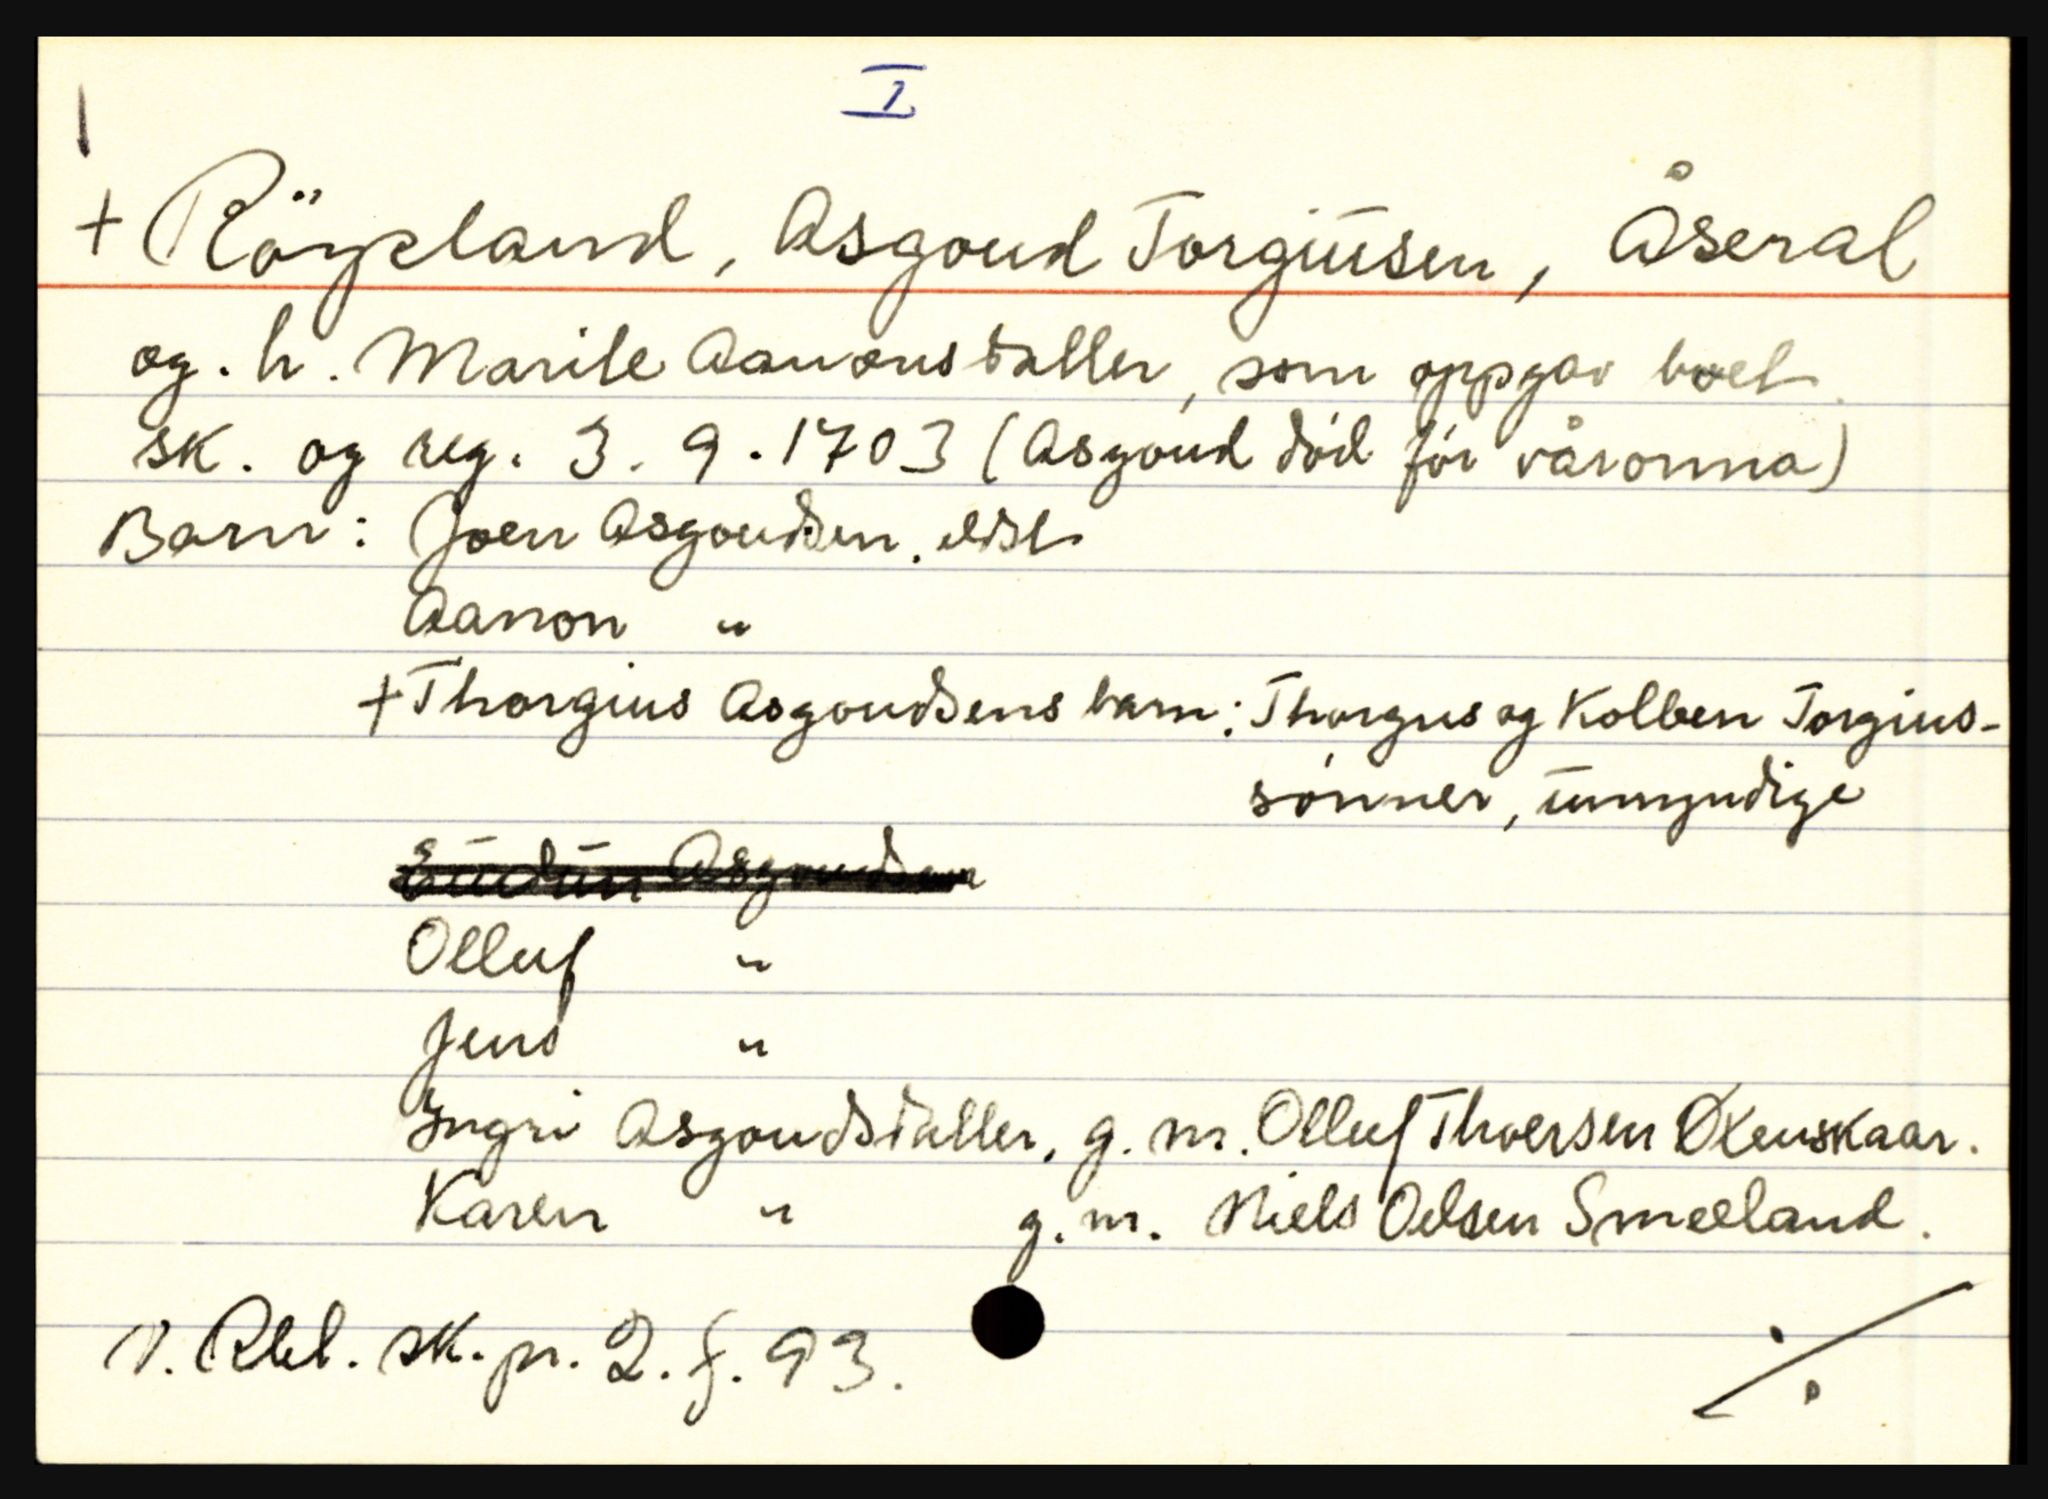 I
+ Röyseland, Asgoud Torgiusen, Åseral
og. h. Marite Aanonsdatter, som oppgav boet
sk. og reg. 3. 9. 1703 (Asgoud död för våronna)
Barn: Joen Asgoudsen. eldst
Aanon "
+ Thorgius Asgoudsens barn: Thorgus og Kolben Torgius-
sönner, umyndige
Asgoudsen
Olluf "
Jens "
Ingri Asgoudsdatter, g. m. Olluf Thoersen Øxenskaar.
Karen " g. m. Niels Oelsen Smeeland.
V. Rbl. sk. pr. 2. f. 93.
./.